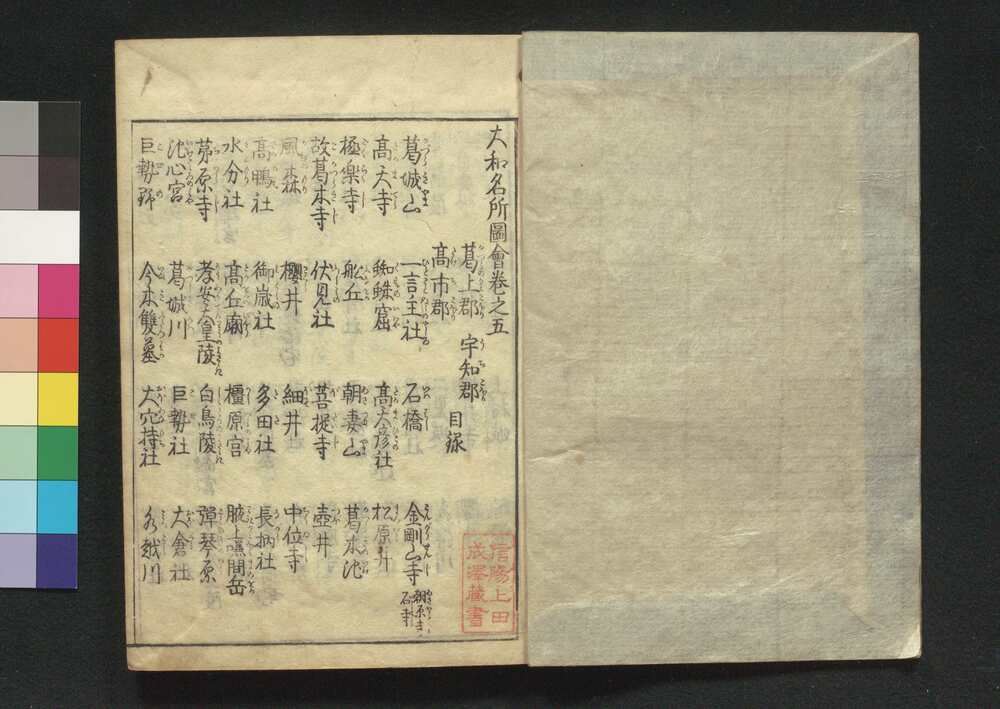 大和名所圖會卷之五
葛上郡 宇知郡
高市郡 目録
葛城山 一言主社 石橋 金剛山寺 朝原寺 石寺
高天寺 蜘蛛窟 高天彦社 松原井
極楽寺 舩丘 朝妻山 葛木池
故葛木寺 伏見社 菩提寺 壺井
風森 櫻井 細井 中位寺
高鴨社 御歳社 多田社 長柄社
水分社 高丘廟 橿原宮 腋上嗛間岳
茅原寺 孝安天皇陵 白鳥陵 彈琴原
池心宮 葛城川 巨勢社 大倉社
巨勢野 今木雙墓 大穴持社 水越川
信陽上田
成澤蔵書